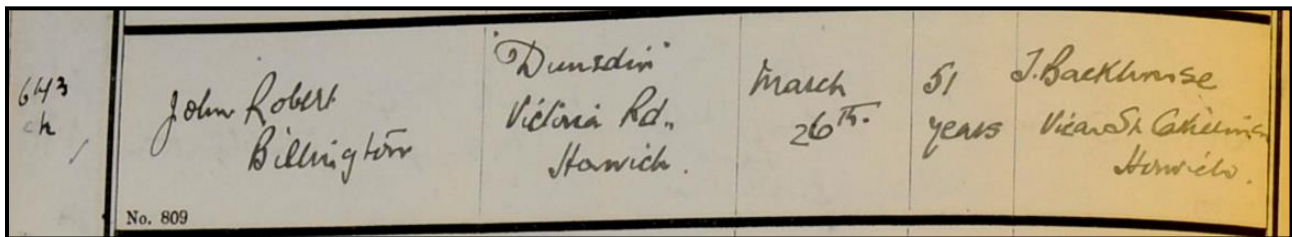 643
ch
John Robert
Billington
"Dunsdin"
Victoria Rd.,
Horwich.
March
26th.
51
years
J. Backhouse
Vicar St Catherine
Horwich.
No. 809